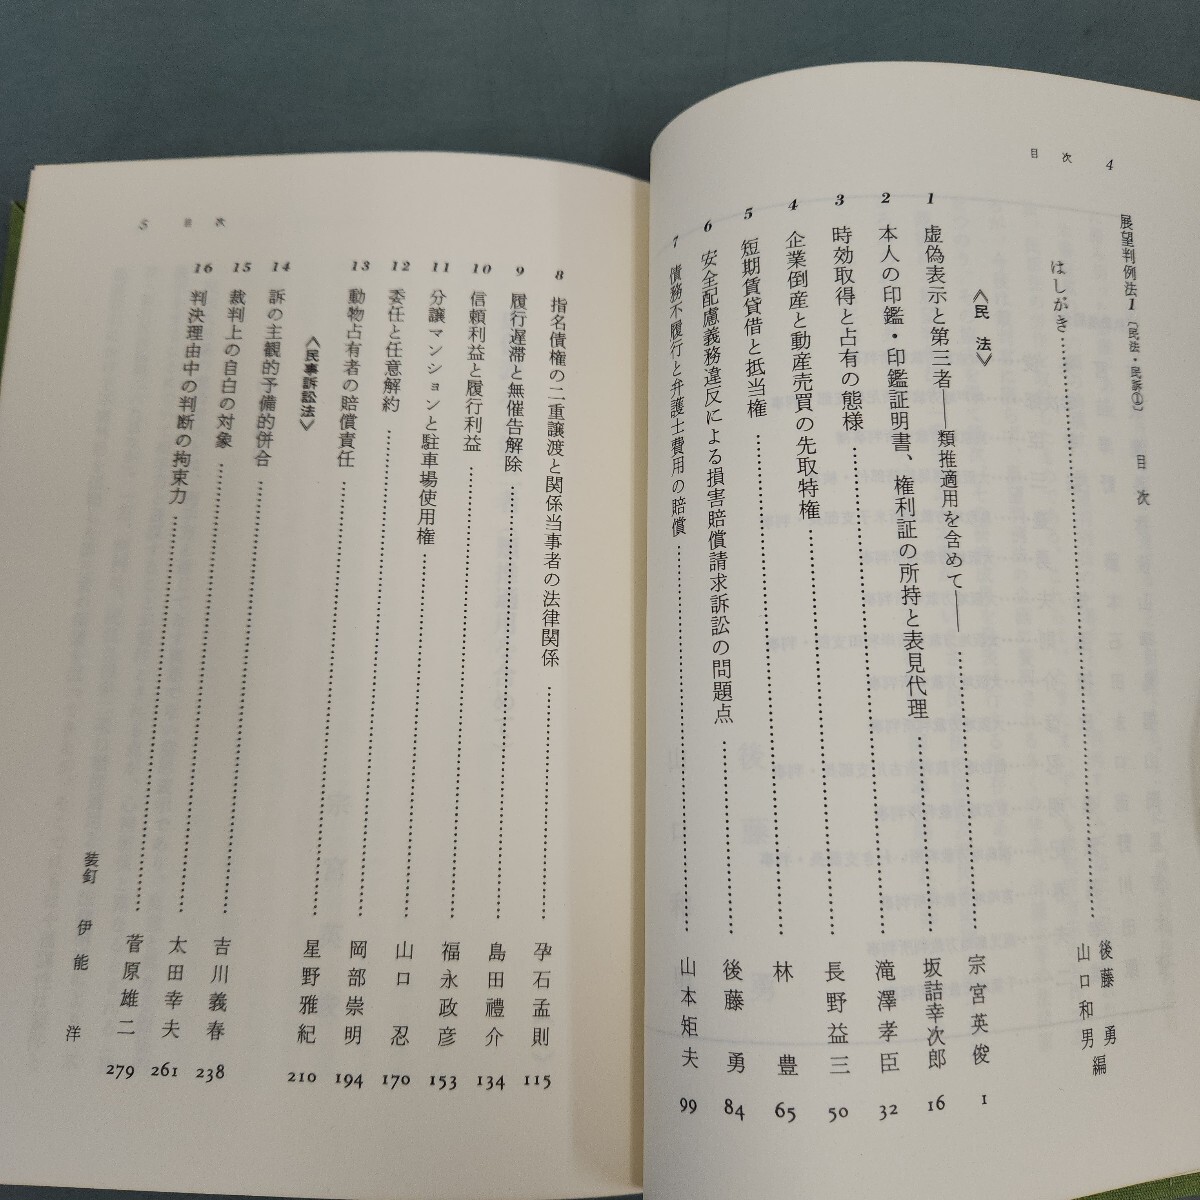 目次 4
展望判例法1〔民法・民訴①〕 目次
後藤 勇
山口和男 編
はしがき
《民法》
1 虚偽表示と第三者――類推適用を含めて―― 宗宮英俊 1
2 本人の印鑑・印鑑証明書、権利証の所持と表見代理 坂詰幸次郎 16
3 時効取得と占有の態様 滝澤孝臣 32
4 企業倒産と動産売買の先取特権 長野益三 50
5 短期賃貸借と抵当権 林 豊 65
6 安全配慮義務違反による損害賠償請求訴訟の問題点 後藤 勇 84
7 債務不履行と弁護士費用の賠償 山本矩夫 99
5 目次
8 指名債権の二重譲渡と関係当事者の法律関係 孕石孟則 115
9 履行遅滞と無催告解除 島田禮介 134
10 信頼利益と履行利益 福永政彦 153
11 分譲マンションと駐車場使用権 山口 忍 170
12 委任と任意解約 岡部崇明 194
13 動物占有者の賠償責任 星野雅紀 210
《民事訴訟法》
14 訴の主観的予備的併合 吉川義春 238
15 裁判上の自白の対象 太田幸夫 261
16 判決理由中の判断の拘束力 菅原雄二 279
装釘 伊能 洋